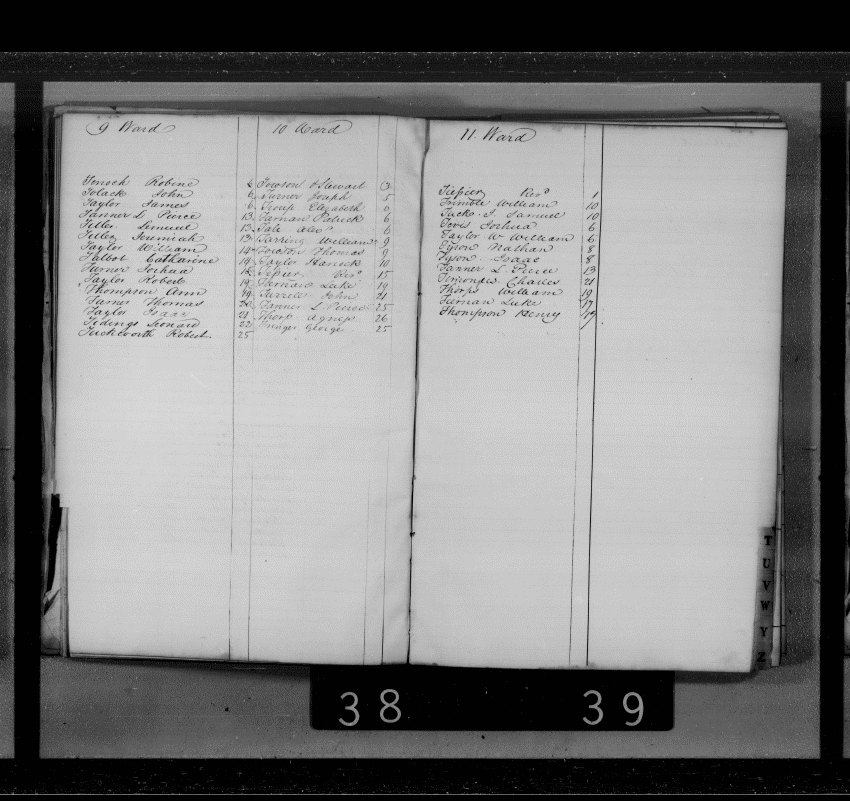 9 Ward
Tenoch Robine 6
Tolack John 6
Taylor James 6
Tanner L Pierce 13
Teller Lemuel 13
Teller Jeremiah 13
Taylor William 14
Talbot Catharine 14
Turner Joshua
Taylor Robert 19
Thompson Ann 19
Turner Thomas 20
Taylor Isaac 21
Tidings Leonard 22
Tuckworth Robert 25
10 Ward
Towson & Stewart
Turner Joseph 5
Troup Elizabeth 6
Tiernan Patrick 6
Tall Alexr 6
Tarring William 9
Towson Thomas 9
Taylor Hanock 10
Tessier Revd 15
Tiernan Luke 19
Turrell John 21
Tanner L Pierce 25
Thorp Agness 26
George 25
11 Ward
Tessier Revd 1
Trimble William 10
Tuck J. Samuel 10
Teves Joshua 6
Taylor W William 6
Tyson Nathan 8
Tyson Isaac 8
Tanner L Pierce 13
Timonds Charles 21
Thorps William 19
Tiernan Luke 17
Thompson Henry 19
T
U
V
W
Y
Z
38 39